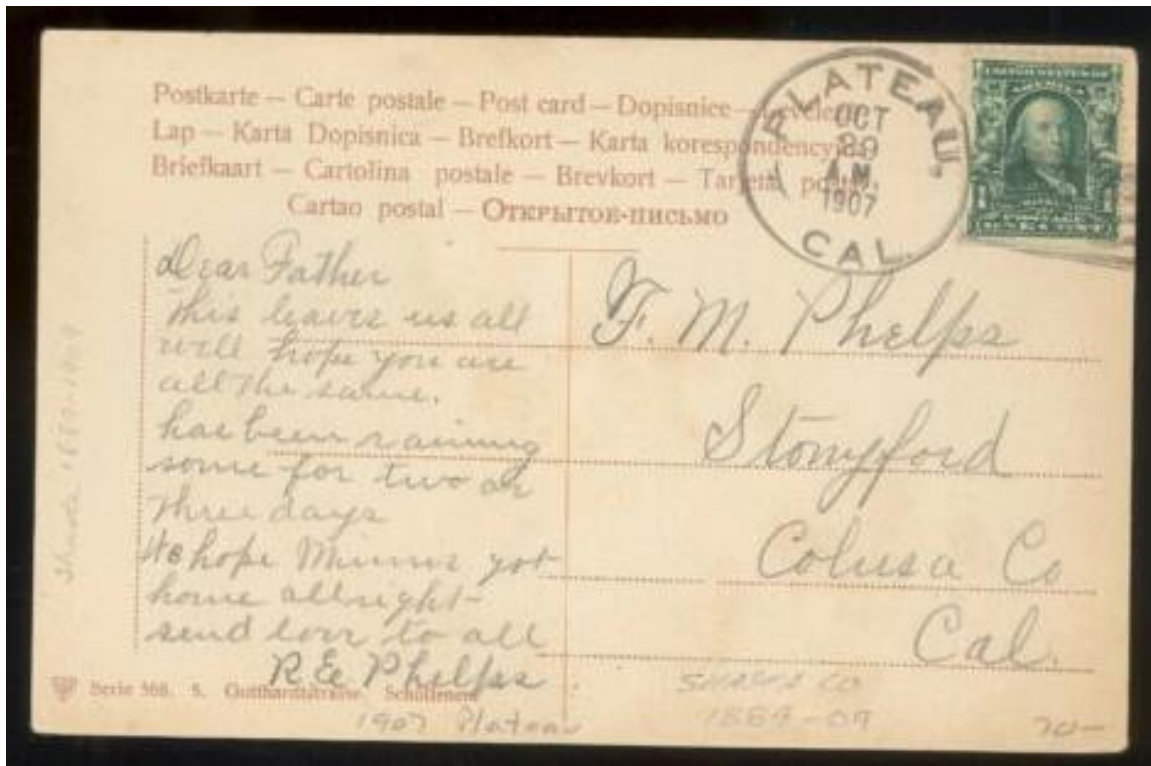 Postkarte — Carte postale — Post card — Dopisnice —
Lap — Karta Dopisnica — Brefkort — Karta korespondencyjna
Briefkaart — Cartolina postale — Brevkort — Tarjetal postal,
Cartao postal — Открытое-письмо
PLATEAU,
OCT
29
A.M.
1907
CAL.
UNITED STATES OF
AMERICA
ONE CENT
Dear Father
this leaves us all
well hope you are
all the same.
has been raining
some for two or
three days
We hope Minnie got
home allright-
send love to all
R E Phelps
F. M. Phelps
Stonyford
Colusa Co
Cal.
Serie 568. 8. Gotthardstrasse. Schöllenen
1907 Plateau
SHASTA CO
1889-07
70-
Shasta 1889-1907